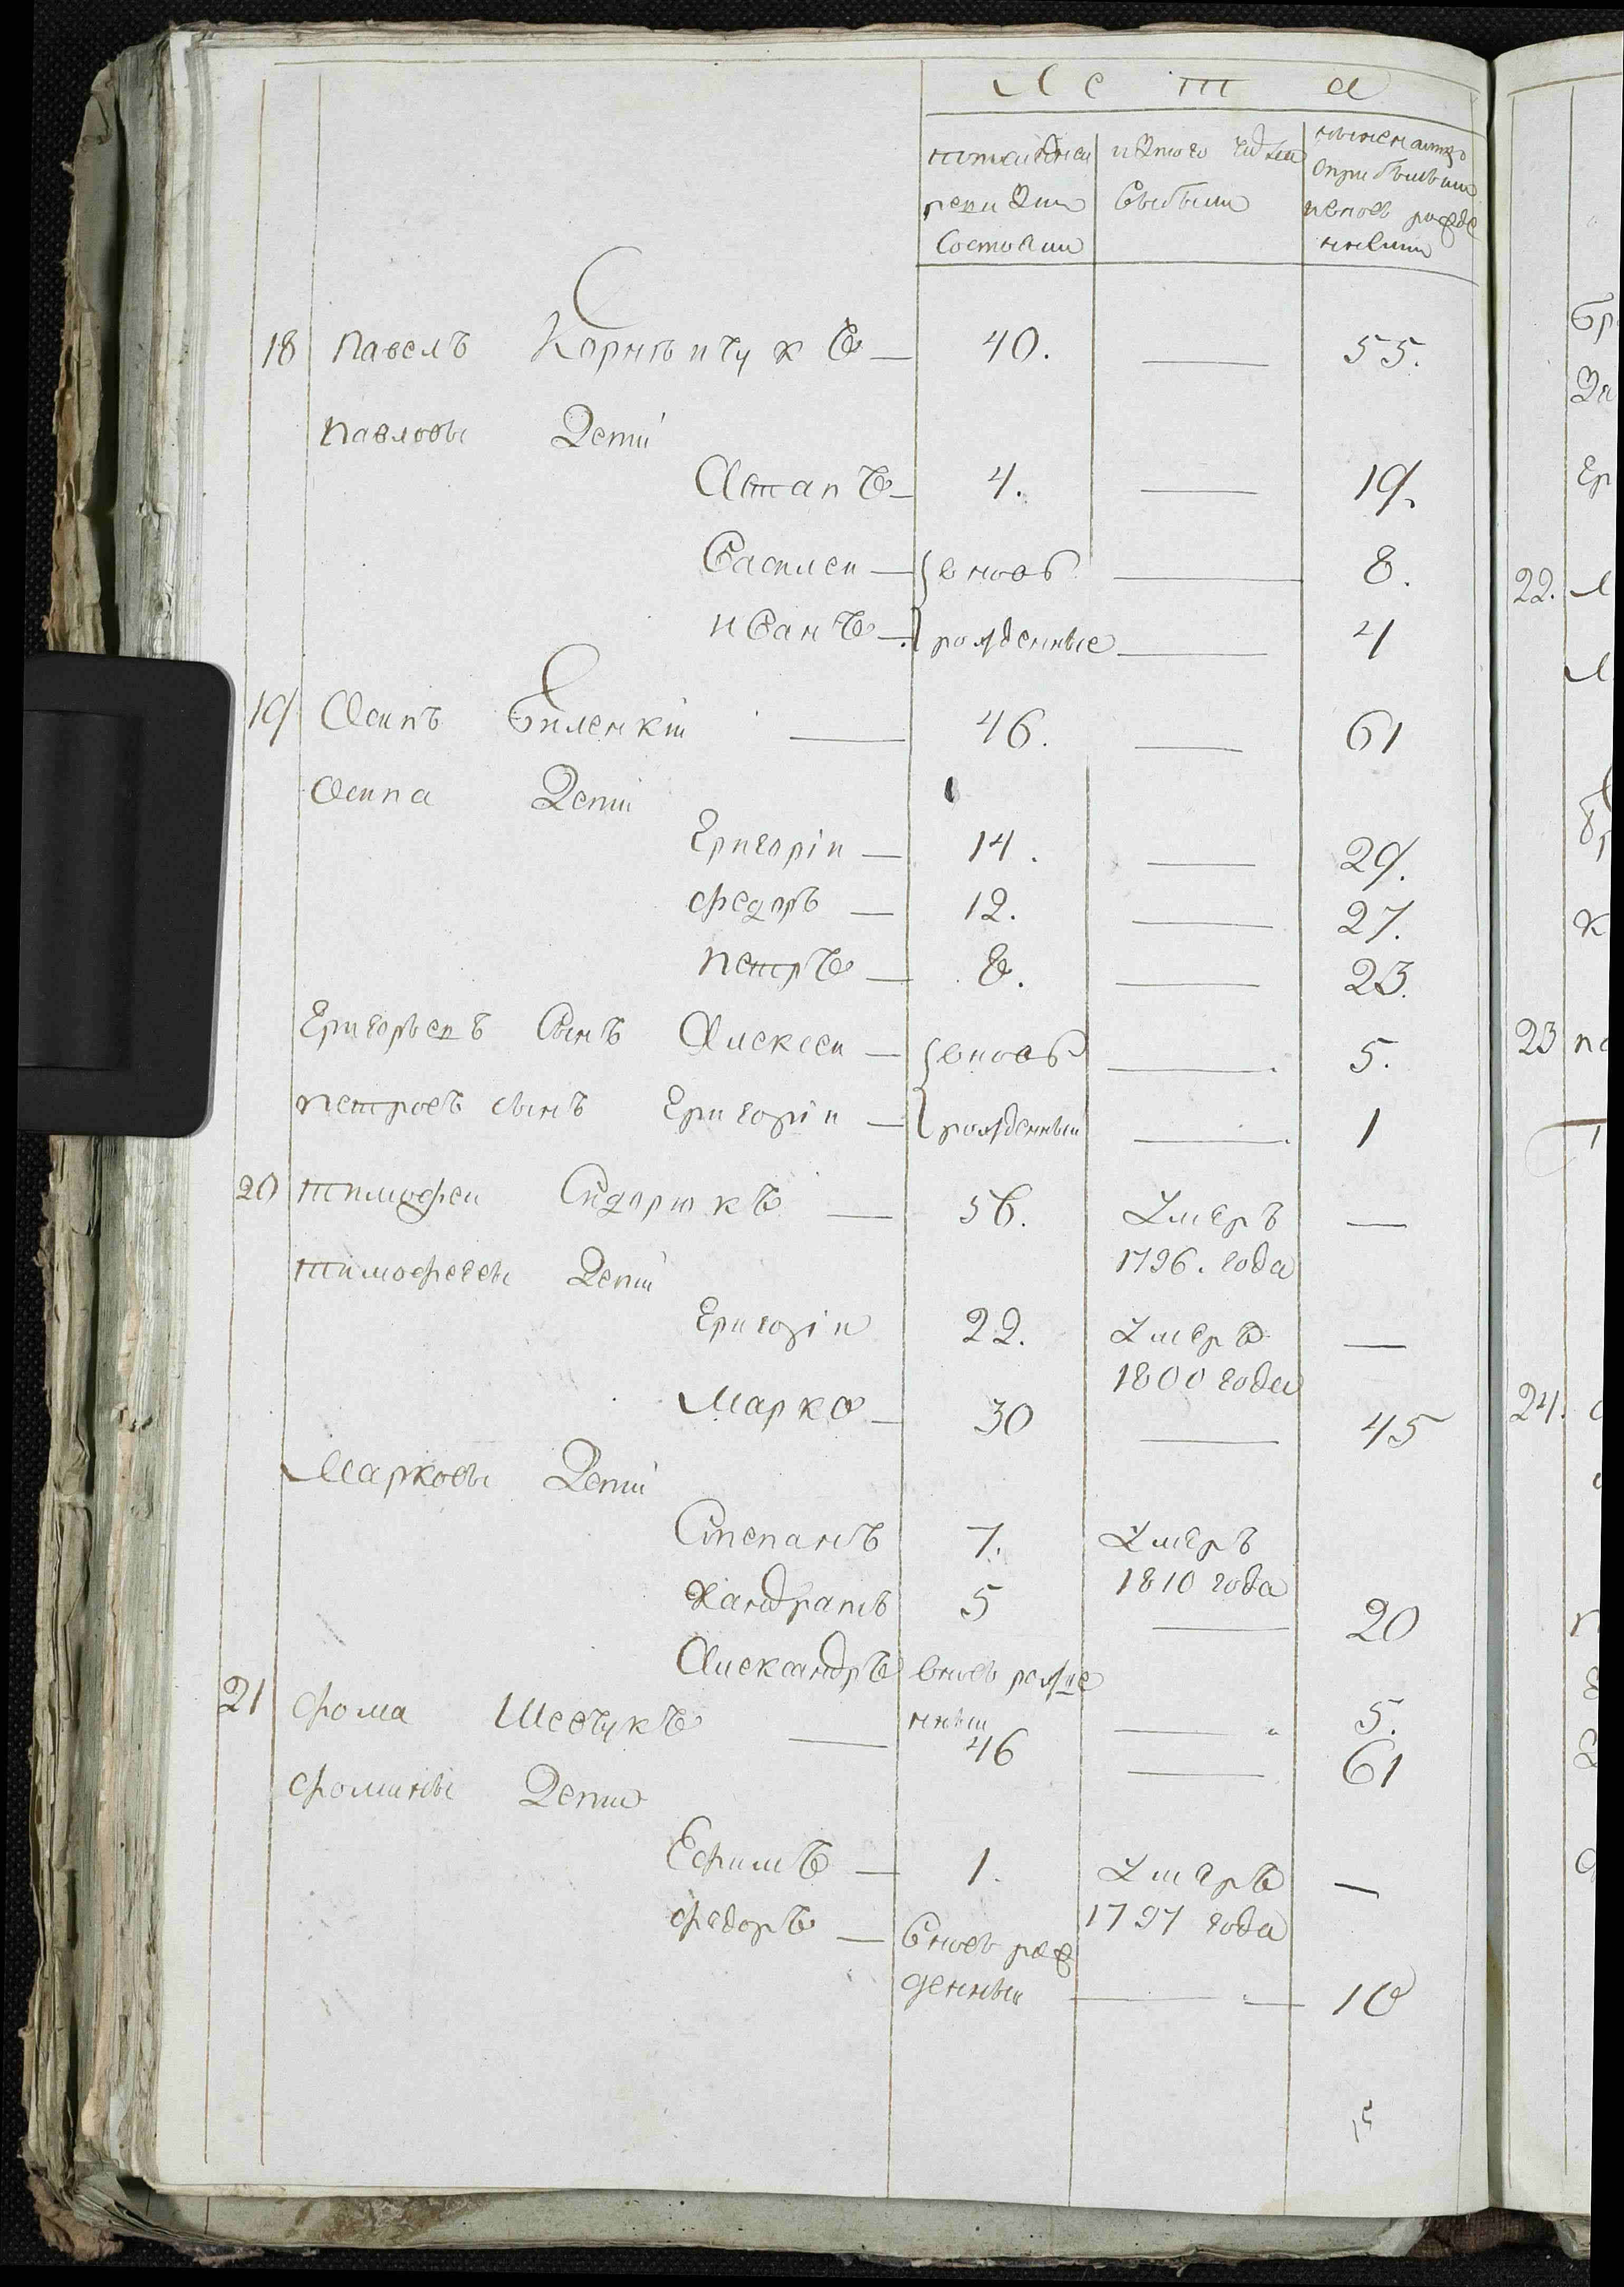 Лета
ревизии
состояли
изтого числа
выбыли
сприбывшими
18 Павелъ Корнейчукъ — 40. — 55.
Павловы Дети
Астапъ — 4. — 19.
Василеи — вновь — 8.
Иванъ — рожденные — 4
19 Осипъ Биленкіи — 46. — 61
Осипа Дети
Григоріи — 14. — 29.
Федоръ — 12. — 27.
Петръ — 8. — 23.
Григорьевъ Сынъ Алексеи — вновь — 5.
Петровъ сынъ Григоріи — рожденныи — 1
20 Тимофеи Сидорюкъ — 56. Умеръ —
1796. года
Тимофеевы Дети
Григоріи 22. Умеръ —
1800 года
Марко — 30 — 45
Марковы Дети
Степанъ 7. Умеръ
1810 года
Кандратъ 5 — 20
Александръ вновь рожде
нныи — 5.
21 Фома Шевчукъ — 46 — 61
Фомины Дети
Ефимъ — 1. Умеръ —
1797 года
Федоръ — вновь рож
денныи — 10
22.
23
24.